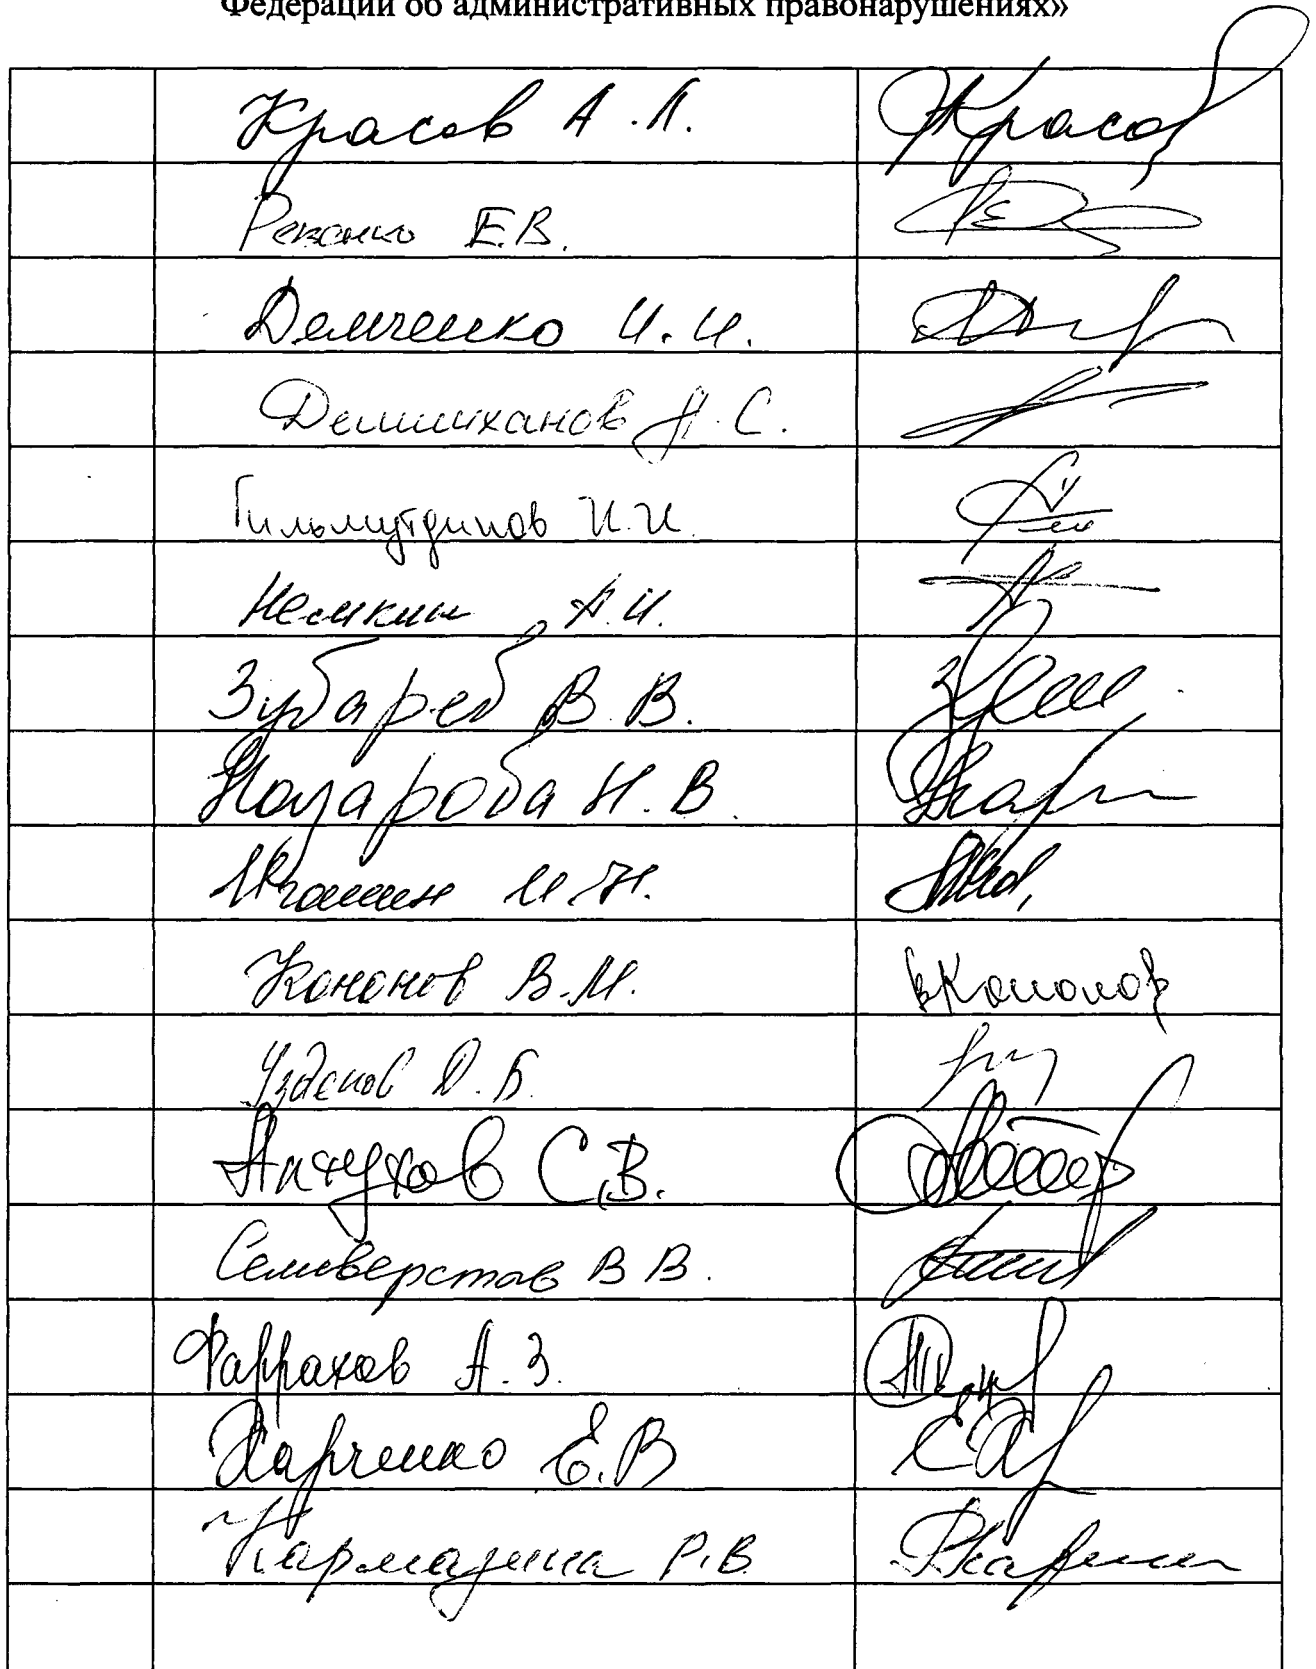 Федерации об административных правонарушениях»
Красов А.Л.
Ревенко Е.В.
Демченко И.И.
Делимханов А.С.
Гильмутдинов И.И.
Немкин А.И.
Зубарев В.В.
Назарова Н.В.
Игошин И.Н.
Кононов В.М. вКононов
Узденов Д.Б.
Алтухов С.В.
Селиверстов В.В.
Фаррахов А.З.
Харченко Е.В.
Кармазина Р.В.